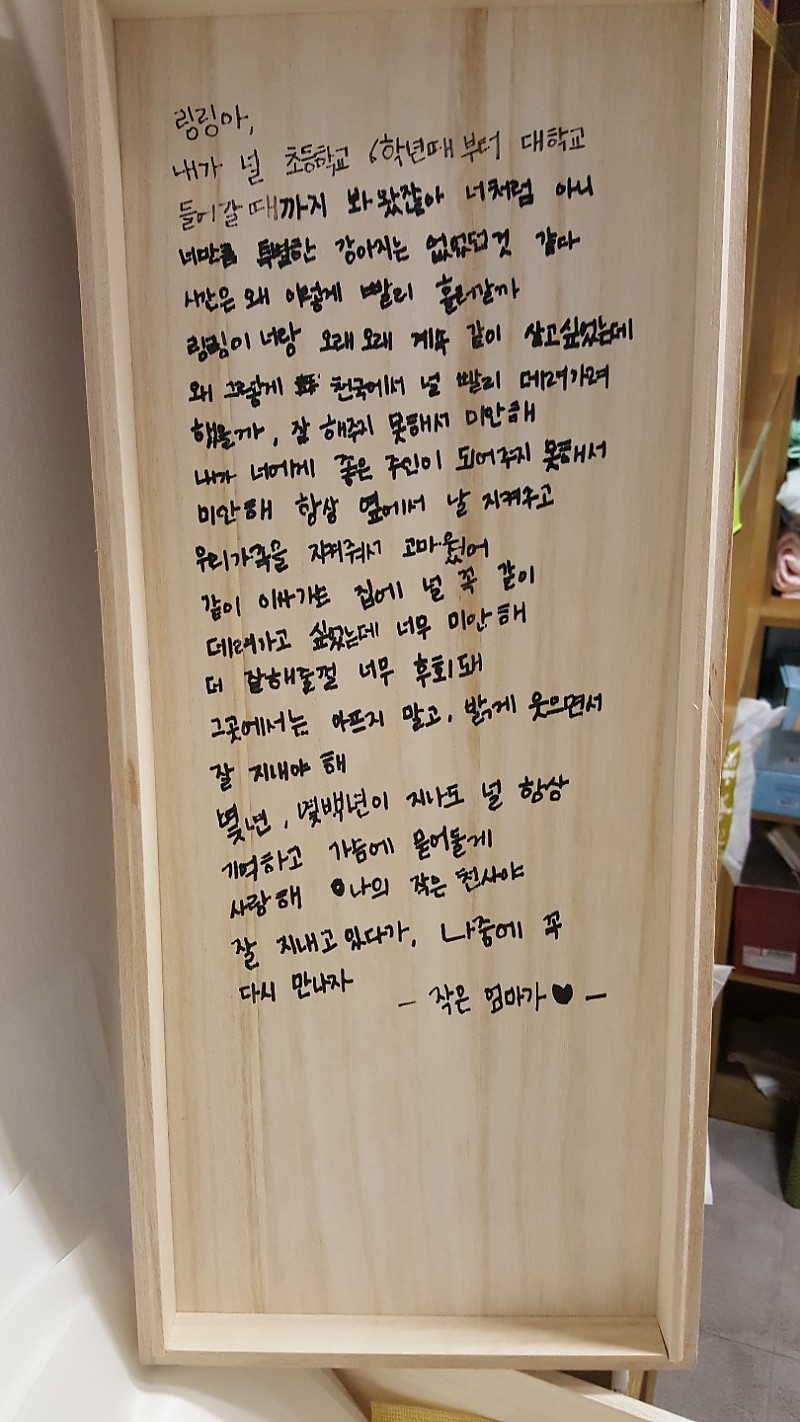 링링아,
내가 널 초등학교 6학년때부터 대학교
들어갈때까지 봐 왔잖아 너처럼 아니
너만큼 특별한 강아지는 없었던것 같다
시간은 왜 이렇게 빨리 흘러갈까
링링이 너랑 오래오래 계속 같이 살고싶었는데
왜 그렇게 천국에서 널 빨리 데려가려
했을까, 잘 해주지 못해서 미안해
내가 너에게 좋은 주인이 되어주지 못해서
미안해 항상 옆에서 날 지켜주고
우리가족을 지켜줘서 고마웠어
같이 이사가는 집에 널 꼭 같이
데려가고 싶었는데 너무 미안해
더 잘해줄껄 너무 후회돼
그곳에서는 아프지 말고, 밝게 웃으면서
잘 지내야 해
몇년, 몇백년이 지나도 널 항상
기억하고 가슴에 묻어둘게
사랑해 나의 작은 천사야
잘 지내고 있다가, 나중에 꼭
다시 만나자
- 작은 엄마가 ♥ -